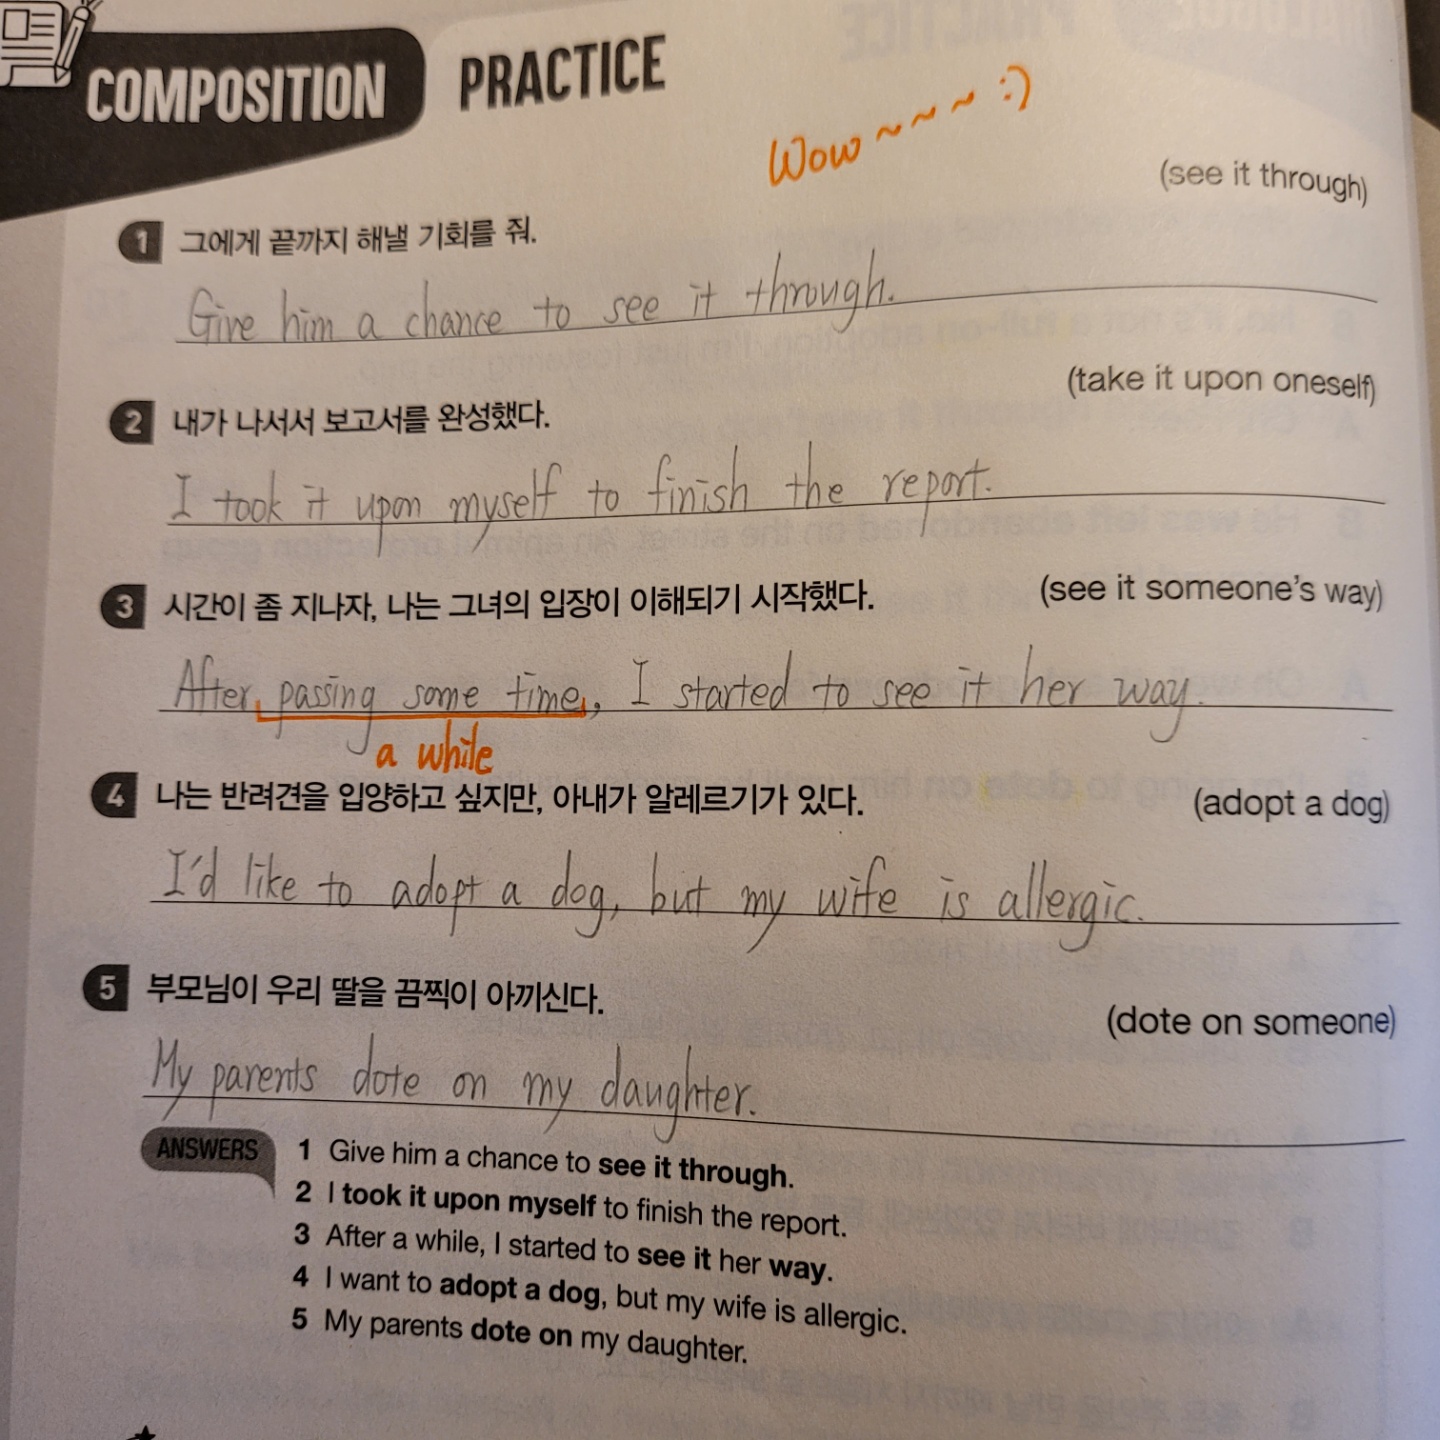 COMPOSITION PRACTICE
Wow ~ ~ ~ :)
(see it through)
1 그에게 끝까지 해낼 기회를 줘.
Give him a chance to see it through.
(take it upon oneself)
2 내가 나서서 보고서를 완성했다.
I took it upon myself to finish the report.
3 시간이 좀 지나자, 나는 그녀의 입장이 이해되기 시작했다. (see it someone's way)
After passing some time, I started to see it her way.
a while
4 나는 반려견을 입양하고 싶지만, 아내가 알레르기가 있다. (adopt a dog)
I'd like to adopt a dog, but my wife is allergic.
5 부모님이 우리 딸을 끔찍이 아끼신다.
(dote on someone)
My parents dote on my daughter.
ANSWERS 1 Give him a chance to see it through.
2 I took it upon myself to finish the report.
3 After a while, I started to see it her way.
4 I want to adopt a dog, but my wife is allergic.
5 My parents dote on my daughter.